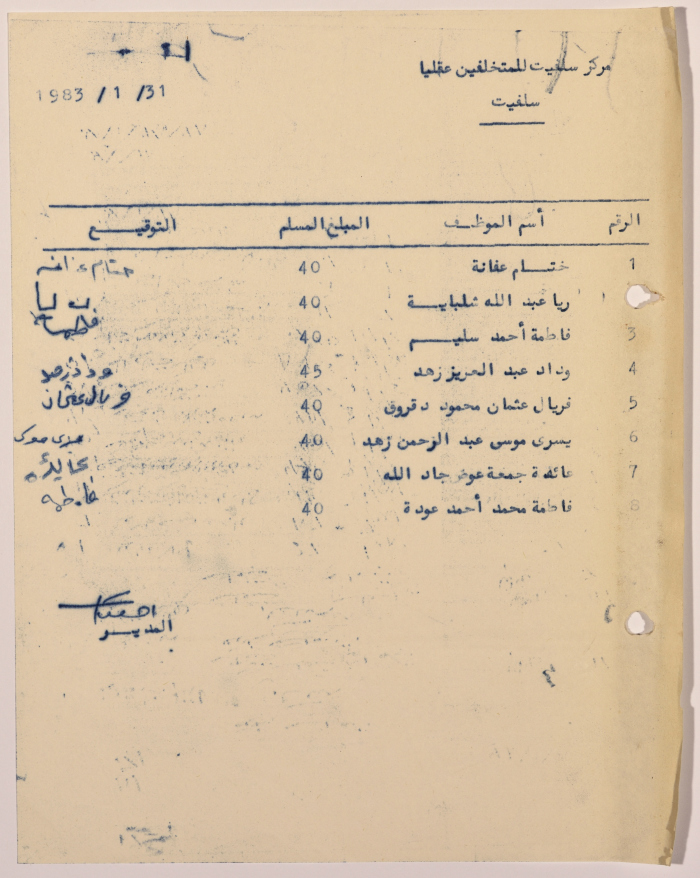 مركز سلفيت للمتخلفين عقليا
سلفيت
1983 / 1 / 31
الرقم أسم الموظف المبلغ المسلم التوقيع
1 ختام عفانة 40
ريا عبد الله شلباية 40
3 فاطمة أحمد سليم 40 فاطمة
4 وداد عبد العزيز زهد 45 وداد زهد
5 فريال عثمان محمود دقروق 40 فريال عثمان
6 يسرى موسى عبد الرحمن زهد 40 يسرى موسى
7 عائدة جمعة عوض جاد الله 40
8 فاطمة محمد أحمد عودة 40 فاطمه
المديــر